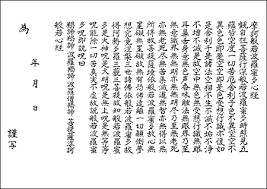 摩訶般若波羅蜜多心経
観自在菩薩行深般若波羅蜜多時照見五
蘊皆空度一切苦厄舎利子色不異空空不
異色色即是空空即是色受想行識亦復如
是舎利子是諸法空相不生不滅不垢不浄
不増不減是故空中無色無受想行識無眼
耳鼻舌身意無色声香味触法無眼界乃至
無意識界無無明亦無無明尽乃至無老死
亦無老死尽無苦集滅道無智亦無得以無
所得故菩提薩埵依般若波羅蜜多故心無
罣礙無罣礙故無有恐怖遠離一切顛倒夢
想究竟涅槃三世諸仏依般若波羅蜜多故
得阿耨多羅三藐三菩提故知般若波羅蜜
多是大神呪是大明呪是無上呪是無等等
呪能除一切苦真実不虚故説般若波羅蜜
多呪即説呪曰
羯諦羯諦波羅羯諦波羅僧羯諦菩提薩婆訶
般若心経
年 月 日
謹写
為